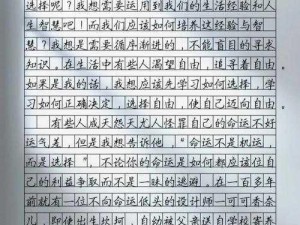 选择呢？我想需要运用到我们的生活经验和人
生智慧吧！而我们应该如何培养这经验与智
慧？我想是需要循序渐进的，不能盲目的寻求
知识，在生活中有些人渴望自由，追求自由。
如果是我的话，我想应该先学习如何选择，学
习如何正确决定，选择自由，使自己迈向自由。
有些人成天怨天尤人怪罪自己的命运不好
运气差，但是我想告诉他，“命运不是机运，
而是选择”，不论你的命运是如何都应该住自
己的利益争取而不是一昧的逃避。在一百多年
前就有一位不向命运低头的设计师一可可香奈
儿，即使出生坎坷，自幼被父亲送自学校寄养